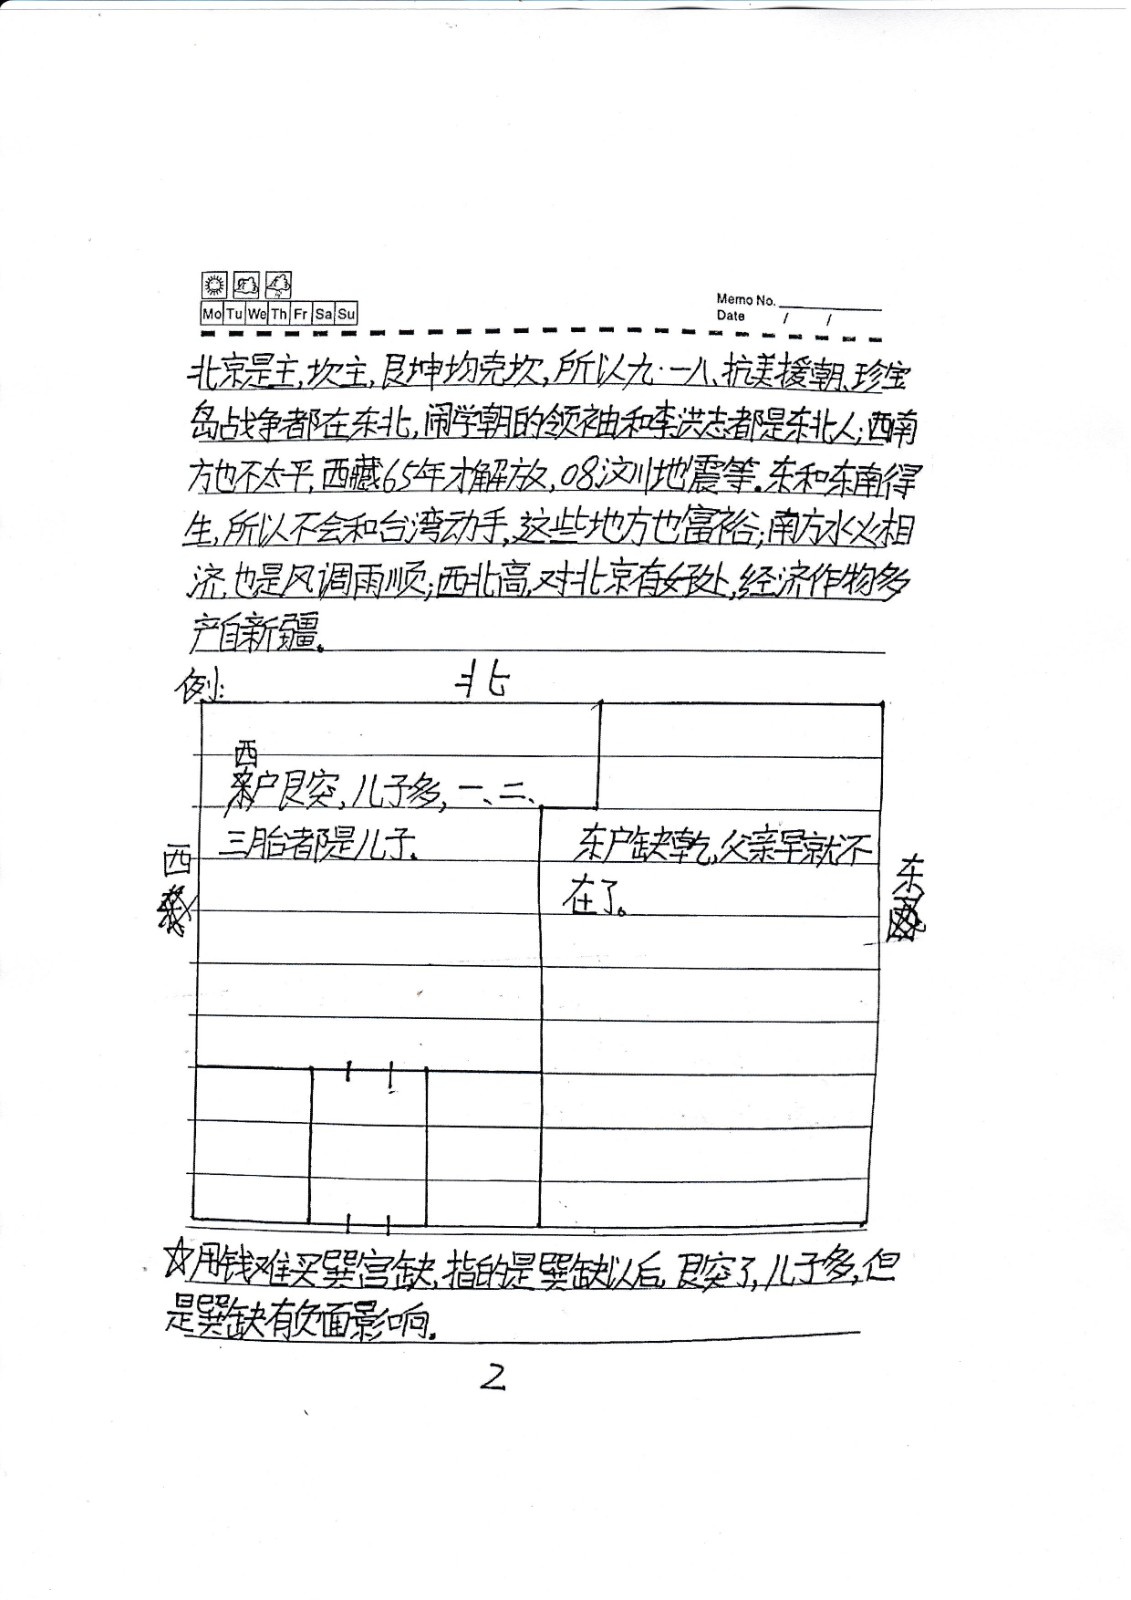 Mo Tu We Th Fr Sa Su
Memo No.
Date / /
北京是主,坎主,艮坤均克坎,所以九·一八、抗美援朝、珍宝
岛战争者都在东北,闹学朝的领袖和李洪志都是东北人;西南
方也不太平,西藏65年才解放,08汶川地震等。东和东南得
生,所以不会和台湾动手,这些地方也富裕;南方水火相
济,也是风调雨顺;西北高,对北京有好处,经济作物多
产自新疆。
例:
北
西
户艮突,儿子多,一、二、
三胎者都是儿子.
东户缺乾,父亲早就不
在了。
西
东
☆用钱难买巽宫缺,指的是巽缺以后,艮突了,儿子多,但
是巽缺有负面影响.
2